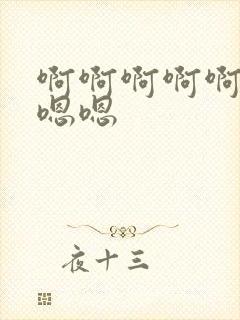 啊啊啊啊啊
嗯嗯
夜十三